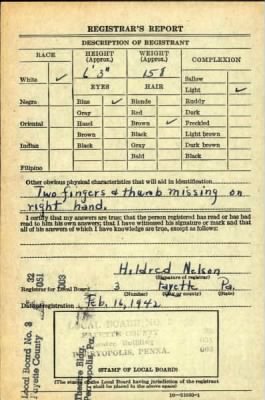 REGISTRAR'S REPORT
DESCRIPTION OF REGISTRANT
RACE HEIGHT (Approx.) WEIGHT (Approx.) COMPLEXION
6' 3" 158
White ✓ Sallow
EYES HAIR Light ✓
Negro Blue ✓ Blonde Ruddy
Gray Red Dark
Oriental Hazel Brown ✓ Freckled
Brown Black Light brown
Indian Black Gray Dark brown
Bald Black
Filipino
Other obvious physical characteristics that will aid in identification
Two fingers & thumb missing on
right hand.
I certify that my answers are true; that the person registered has read or has had
read to him his own answers; that I have witnessed his signature or mark and that
all of his answers of which I have knowledge are true, except as follows:
Hildred Nelson
(Signature of registrar)
Registrar for Local Board 3 Fayette Pa.
(Number) (City or county) (State)
Date of registration Feb. 16, 1942
LOCAL BOARD NO. 3
Theatre Building
PERRYOPOLIS, PENNA.
(STAMP OF LOCAL BOARD)
(The stamp of the Local Board having jurisdiction of the registrant
shall be placed in the above space)
Local Board No. 3
Fayette County
Theatre Bldg.
Perryopolis, Pa.
32
051
003